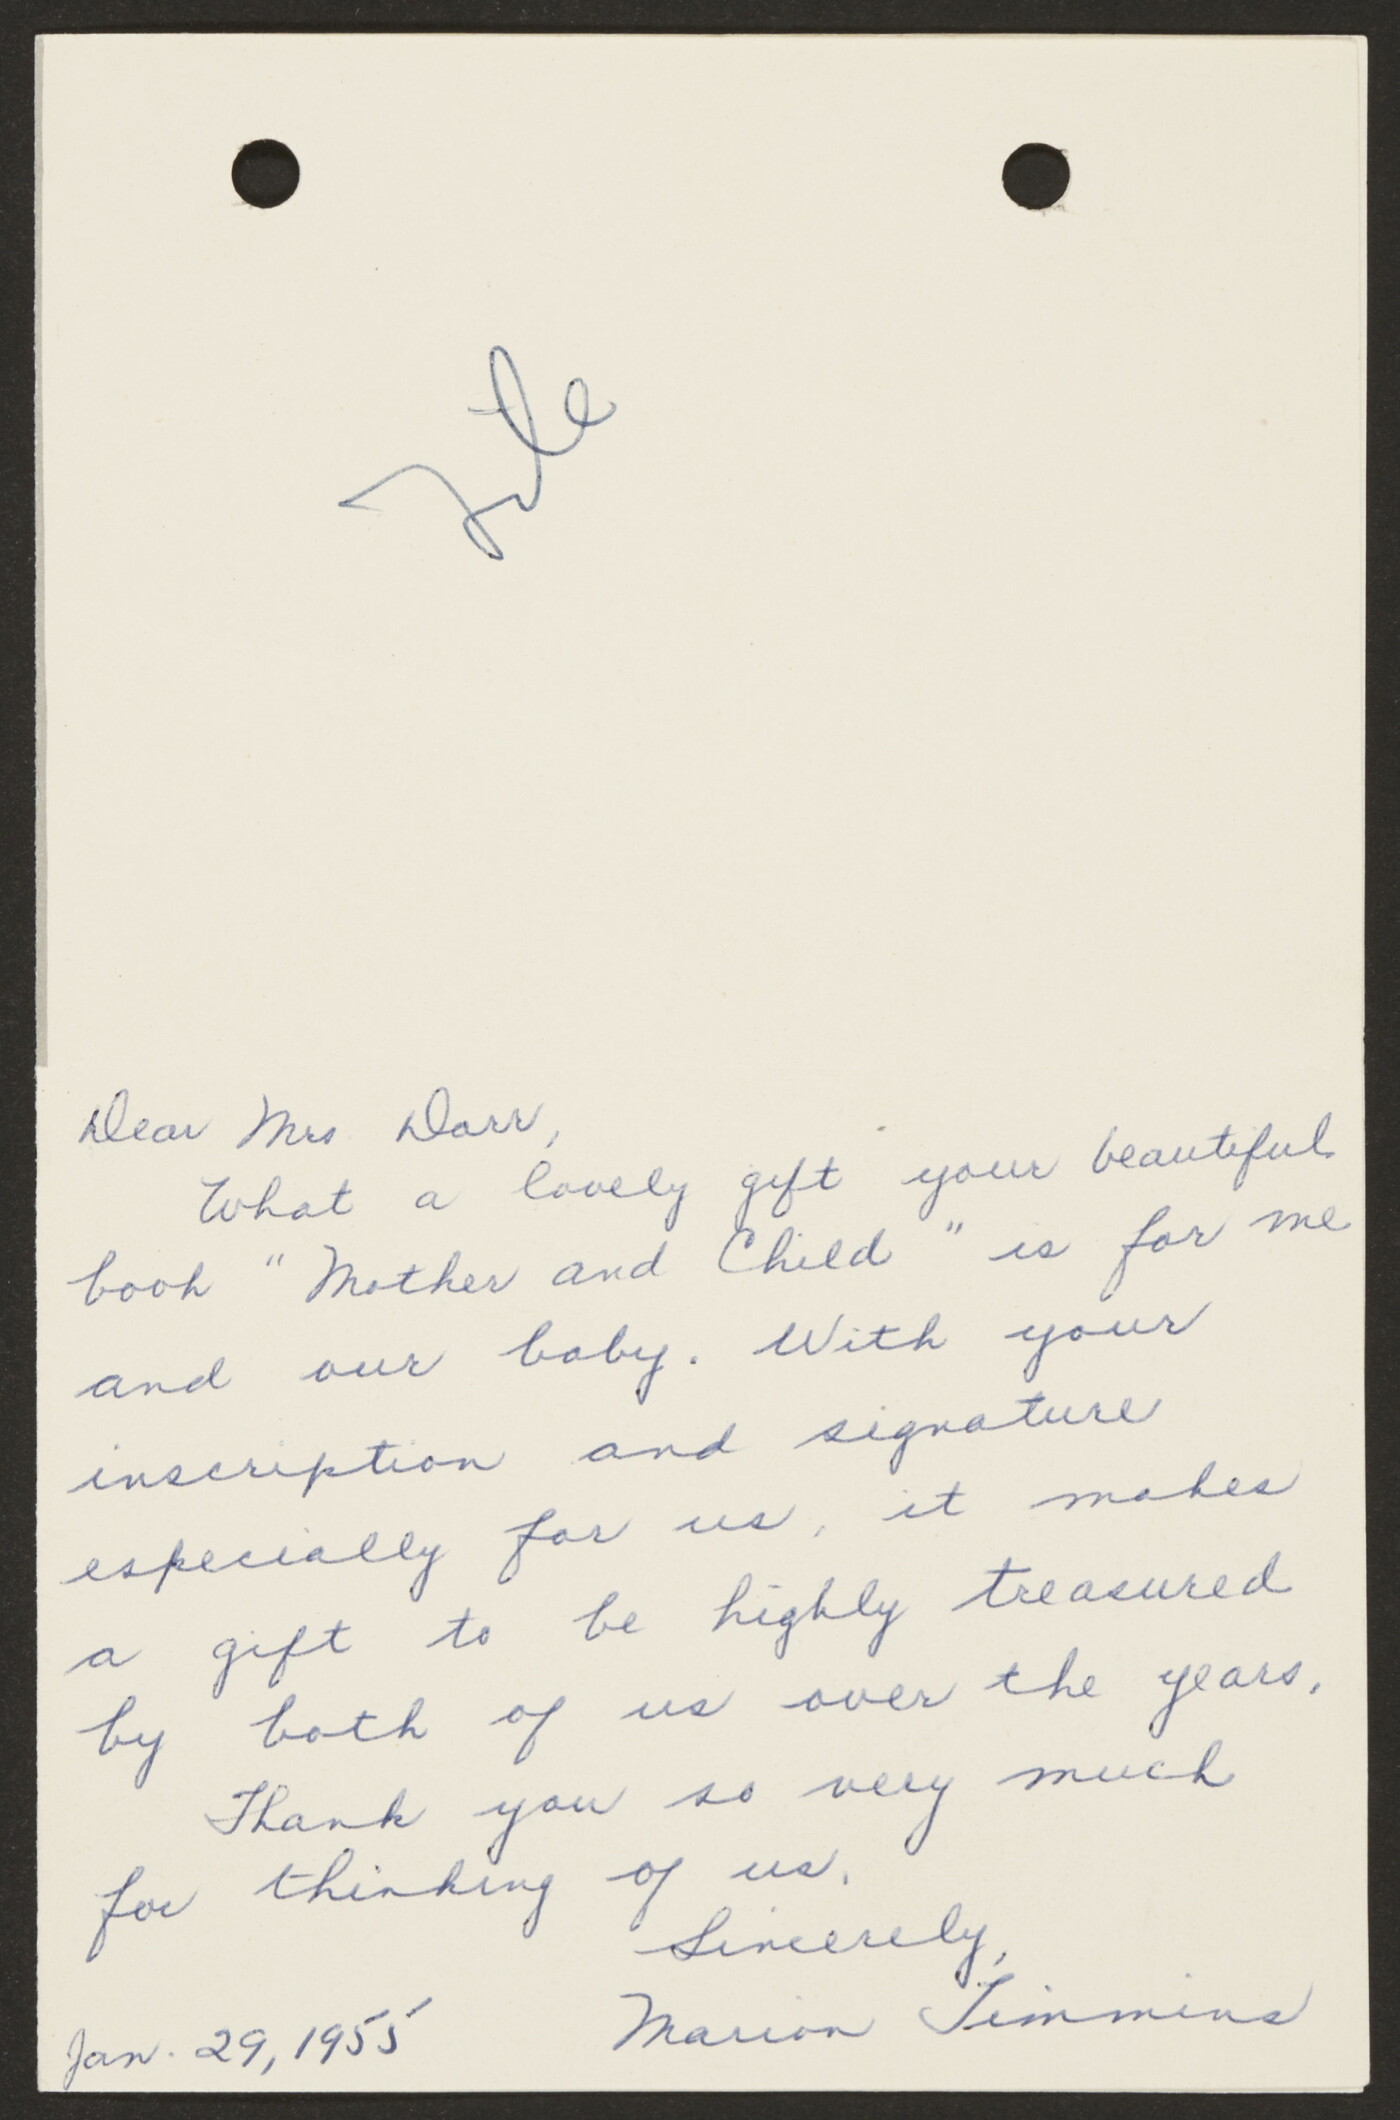 File
Dear Mrs Dorr,
What a lovely gift your beautiful
book "Mother and Child" is for me
and our baby. With your
inscription and signature
especially for us, it makes
a gift to be highly treasured
by both of us over the years.
Thank you so very much
for thinking of us.
Sincerely,
Marion Timmins
Jan. 29, 1955